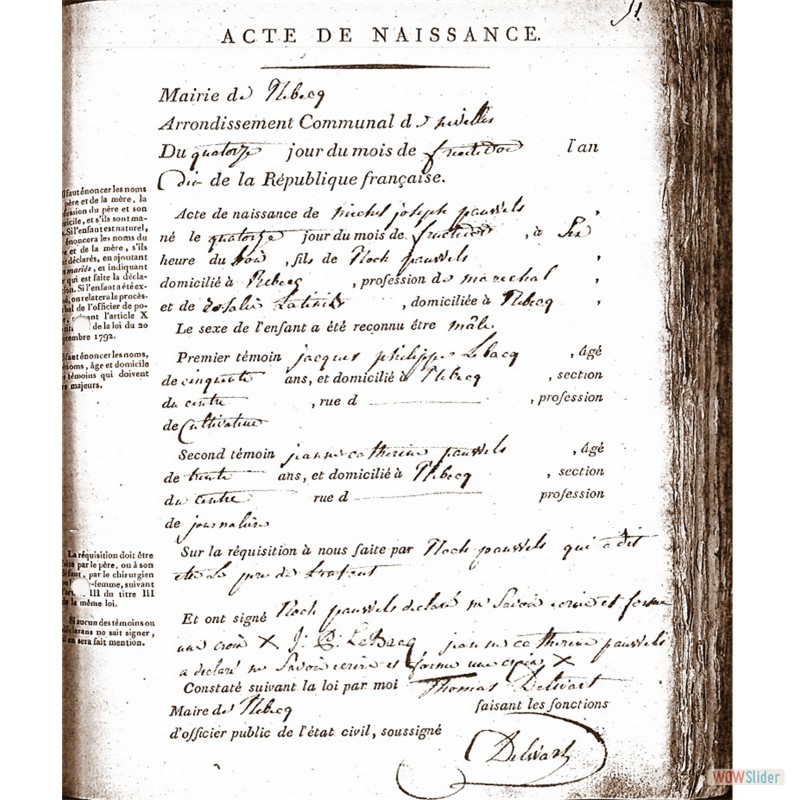 51
ACTE DE NAISSANCE.
Mairie de Rebecq
Arrondissement Communal de nivelles
Du quatorze jour du mois de fructidor l'an
dix de la République française.
Acte de naissance de michel joseph pauwels
né le quatorze jour du mois de fructidor, à Six
heure du Soir, fils de Roch pauwels
domicilié à Rebecq, profession de marechal
et de rosalie, domiciliée à Rebecq
Le sexe de l'enfant a été reconnu être mâle
Premier témoin jacques philippe Lebacq, âgé
de cinquante ans, et domicilié à Rebecq, section
du centre, rue d, profession
de Cultivateur
Second témoin jeanne catherine pauwels, âgé
de trente ans, et domicilié à Rebecq, section
du centre rue d profession
de journaliere
Sur la réquisition à nous faite par Roch pauwels qui a dit
etre Le pere de L'enfant
Et ont signé Roch pauwels declaré ne Savoir ecrire et forme
une croix X J: P: LeBacq, jeanne catherine pauwels
a declaré ne Savoir ecrire et forme une croix X
Constaté suivant la loi par moi Thomas Delwart
Maire de Rebecq faisant les fonctions
d'officier public de l'état civil, soussigné
Delwart
Il faut énoncer les noms
père et de la mère, la
ession du père et son
icile, et s'ils sont ma-
Si l'enfant est naturel,
énoncera les noms du
e et de la mère, s'ils
t déclarés, en ajoutant
mariés, et indiquant
qui est faite la décla-
on. Si l'enfant a été ex-
é, on relatera le procès-
bal de l'officier de po-
suivant l'article X
de la loi du 20
ptembre 1792.
faut énoncer les noms,
noms, âge et domicile
témoins qui doivent
majeurs.
La réquisition doit être
ite par le père, ou à son
défaut, par le chirurgien
-femme, suivant
l'art. III du titre III
e la même loi.
Si aucun des témoins ou
larans ne sait signer,
en sera fait mention.
WOWSlider